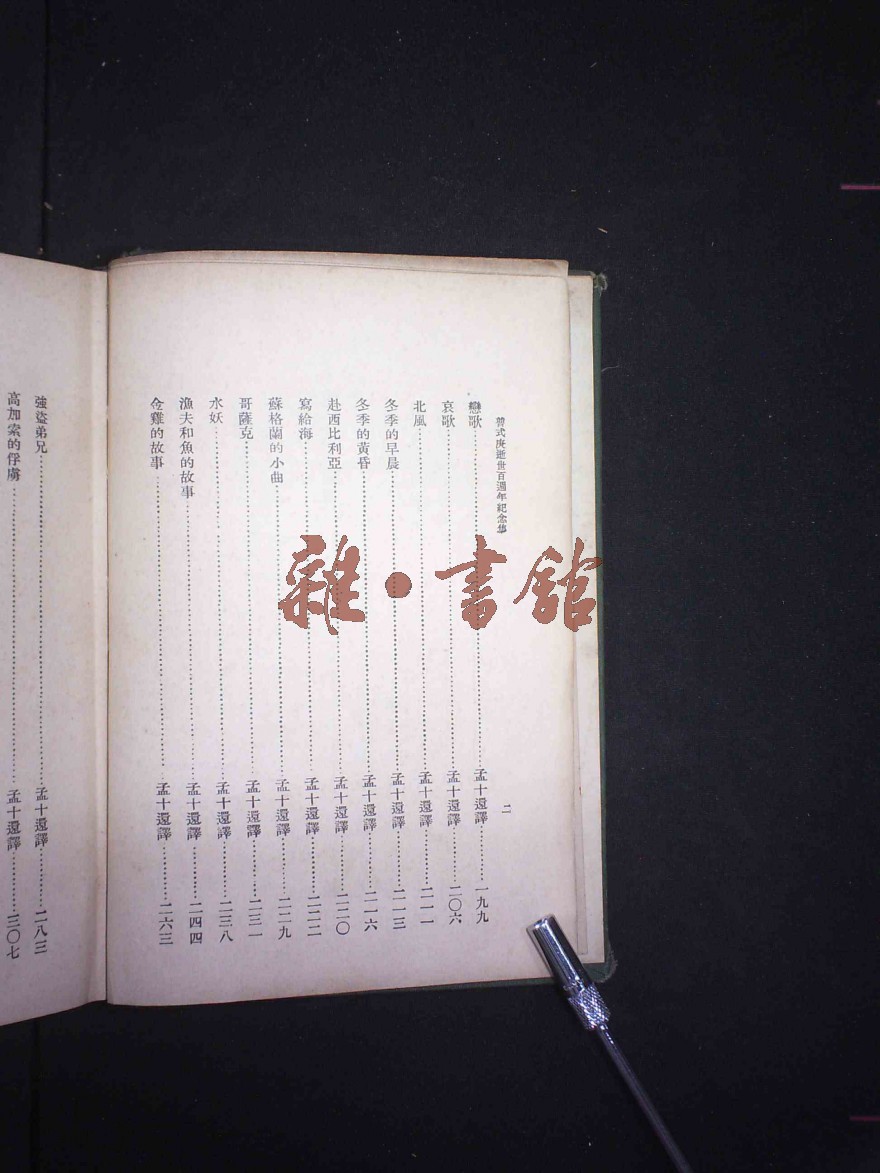 普式庚逝世百週年紀念集
二
戀歌……孟十還譯……一九九
哀歌……孟十還譯……二〇六
北風……孟十還譯……二一一
冬季的早晨……孟十還譯……二一三
冬季的黃昏……孟十還譯……二一六
赴西比利亞……孟十還譯……二二〇
寫給海……孟十還譯……二二二
蘇格蘭的小曲……孟十還譯……二二九
哥薩克……孟十還譯……二三一
水妖……孟十還譯……二三八
漁夫和魚的故事……孟十還譯……二四四
金雞的故事……孟十還譯……二六三
強盜弟兄……孟十還譯……二八三
高加索的俘虜……孟十還譯……三〇七
雜·書館